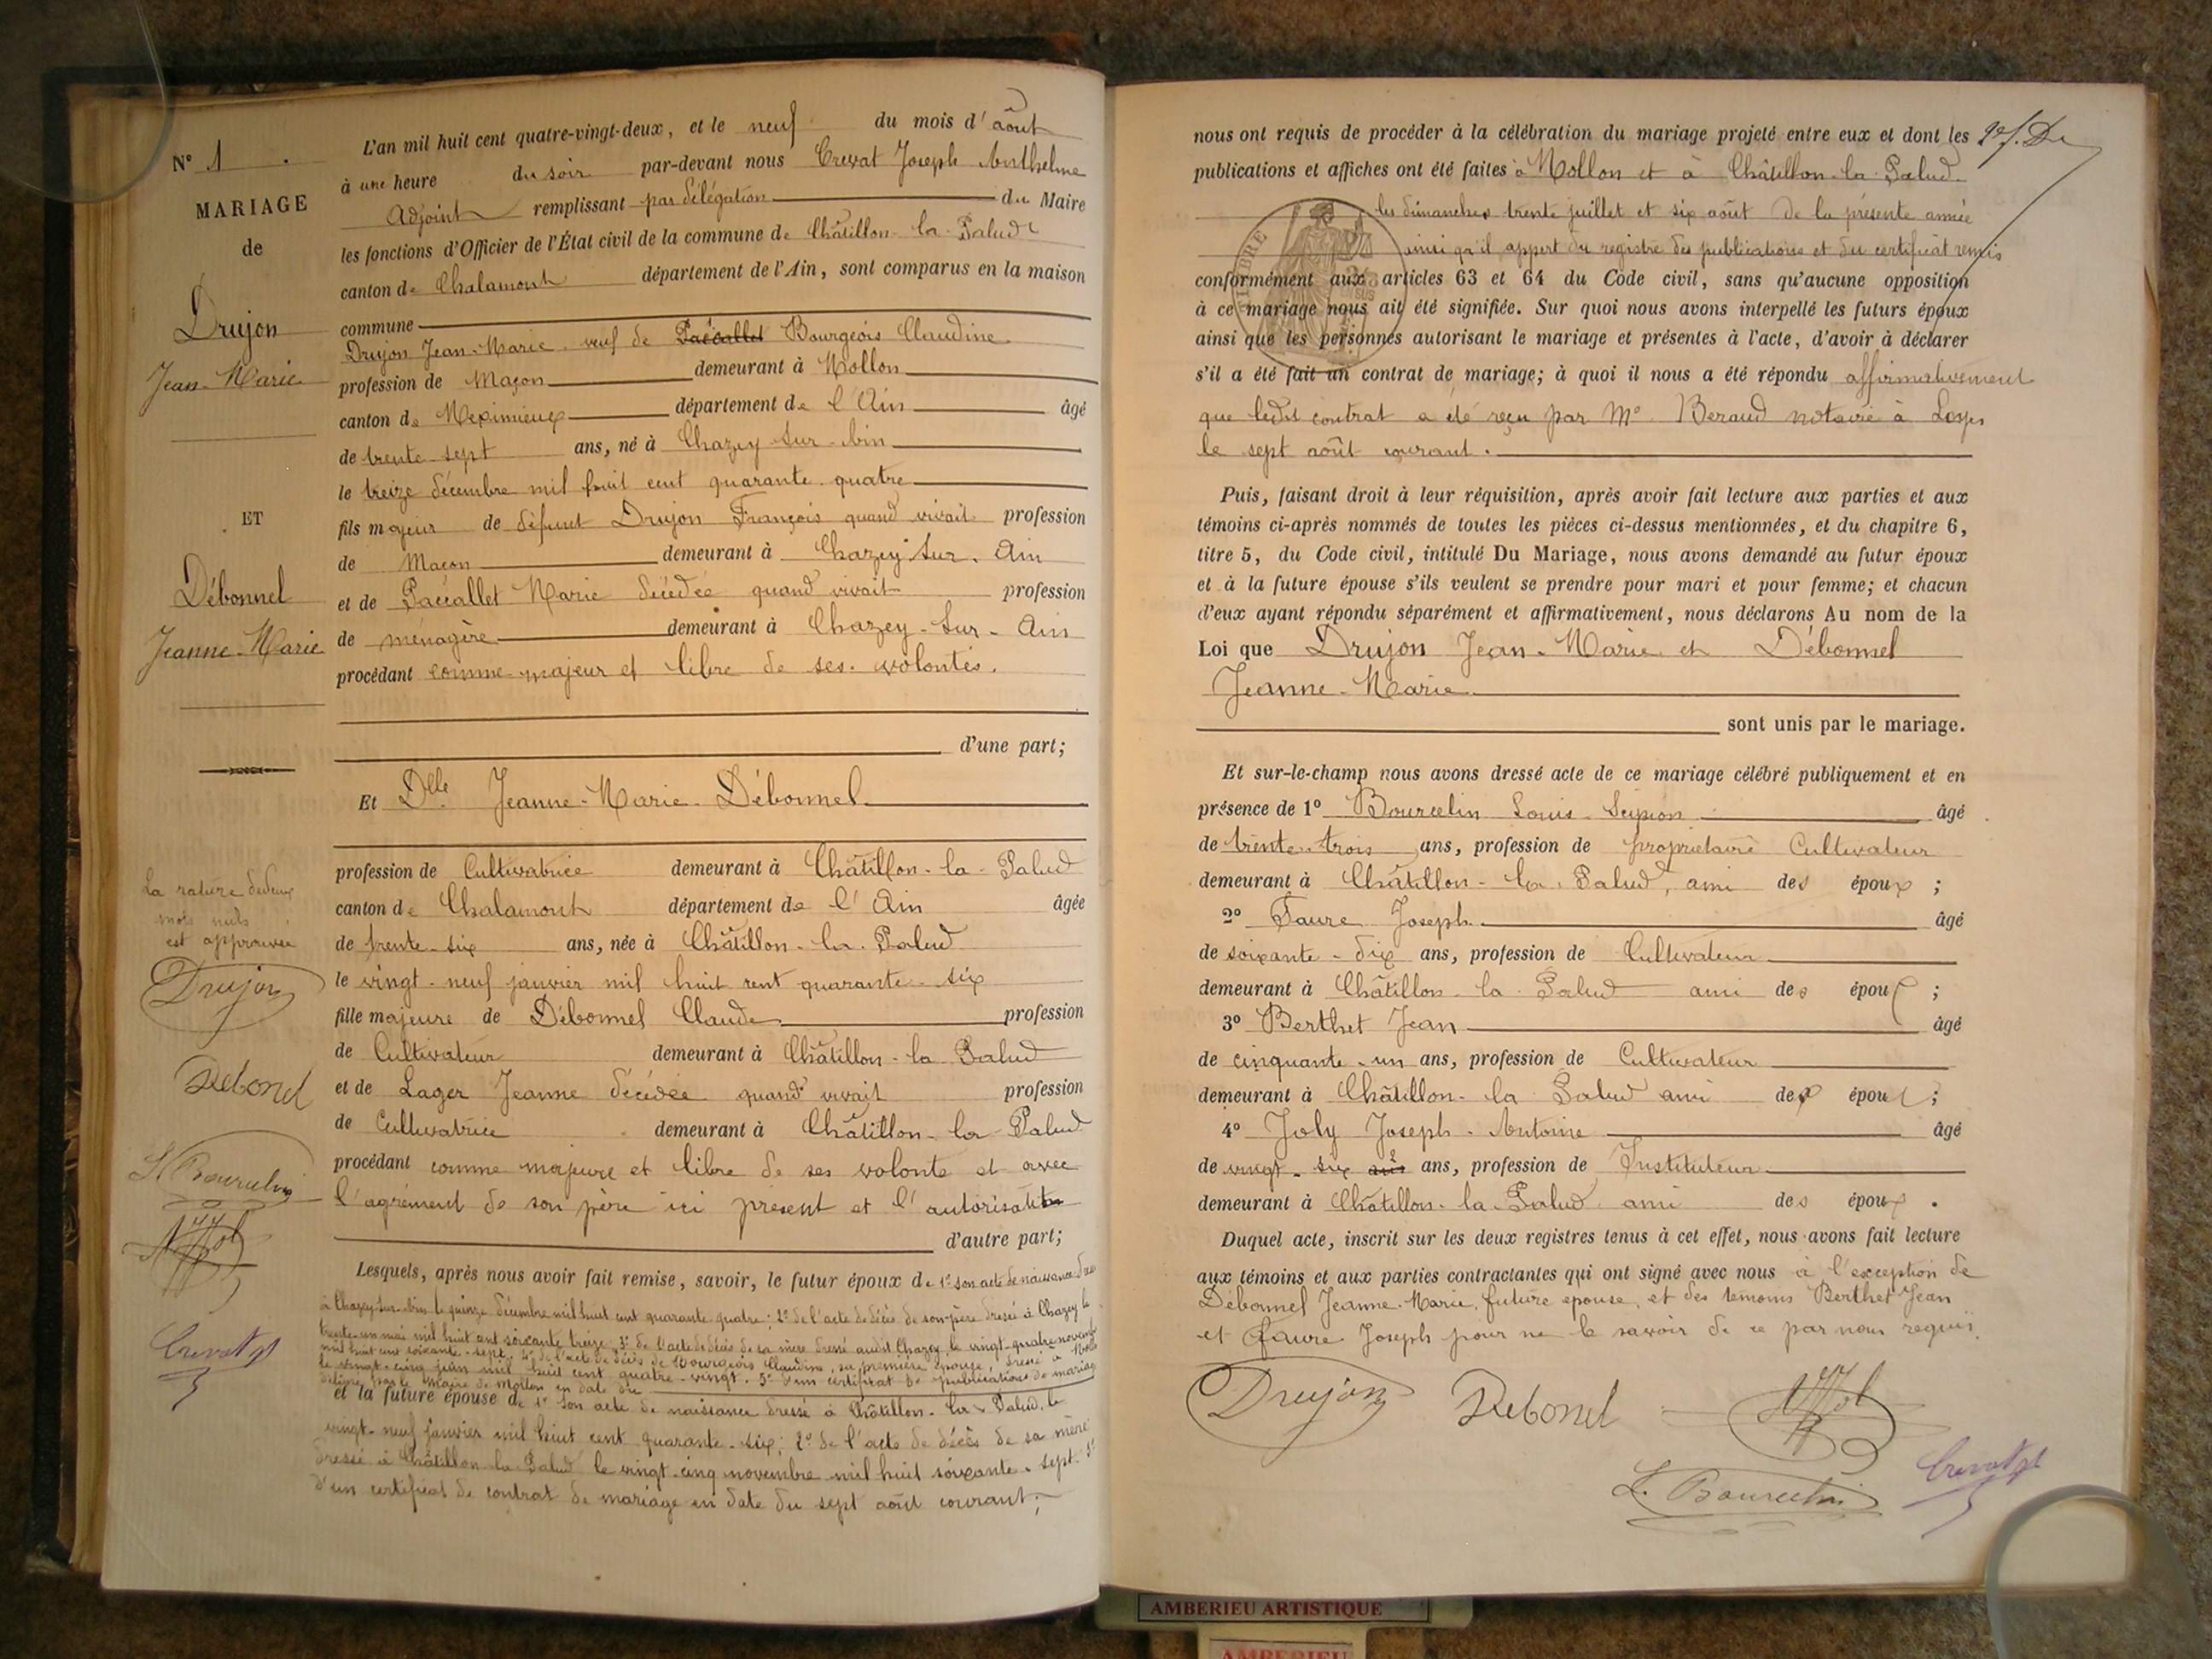 N° 1
MARIAGE
de
Drujon
Jean-Marie
ET
Débonnel
Jeanne-Marie
La rature de deux
mots nuls
est approuvée
Drujon
Debonel
L. Bourcelin
Crevat
L'an mil huit cent quatre-vingt-deux, et le neuf du mois d'août
à une heure du soir par-devant nous Crevat Joseph Anthelme
Adjoint remplissant par délégation du Maire
les fonctions d'Officier de l'État civil de la commune de Châtillon-la-Palud
canton de Chalamont département de l'Ain, sont comparus en la maison
commune
Drujon Jean-Marie veuf de Paccallet Bourgeois Claudine
profession de Maçon demeurant à Mollon
canton de Meximieux département de l'Ain âgé
de trente-sept ans, né à Chazey-sur-Ain
le treize décembre mil huit cent quarante-quatre
fils majeur de défunt Drujon François quand vivait profession
de Maçon demeurant à Chazey-sur-Ain
et de Paccallet Marie décédée quand vivait profession
de ménagère demeurant à Chazey-sur-Ain
procédant comme majeur et libre de ses volontés.
d'une part;
Et Dlle Jeanne-Marie Débonnel
profession de Cultivatrice demeurant à Châtillon-la-Palud
canton de Chalamont département de l'Ain âgée
de trente-six ans, née à Châtillon-la-Palud
le vingt-neuf janvier mil huit cent quarante-six
fille majeure de Débonnel Claude profession
de Cultivateur demeurant à Châtillon-la-Palud
et de Lager Jeanne décédée quand vivait profession
de Cultivatrice demeurant à Châtillon-la-Palud
procédant comme majeure et libre de ses volonté et avec
l'agrément de son père ici present et l'autorisation
d'autre part;
Lesquels, après nous avoir fait remise, savoir, le futur époux de 1° son acte de naissance dressé
à Chazey-sur-Ain le quinze décembre mil huit cent quarante quatre; 2° de l'acte de décès de son père dressé à Chazey le
trente-un mai mil huit cent soixante treize, 3° de l'acte de décès de sa mère dressé audit Chazey le vingt-quatre novembre
mil huit cent soixante-sept, 4° de l'acte de décès de Bourgeois Claudine, sa première épouse, dressé à Mollon
le vingt-cinq juin mil huit cent quatre-vingt. 5° d'un certificat de publications de mariage
délivré par le Maire de Mollon en date du
et la future épouse de 1° son acte de naissance dressé à Châtillon-la-Palud, le
vingt-neuf janvier mil huit cent quarante-six; 2° de l'acte de décès de sa mère
dressé à Châtillon-la-Palud le vingt-cinq novembre mil huit soixante-sept. 3°
d'un certificat de contrat de mariage en date du sept août courant;
nous ont requis de procéder à la célébration du mariage projeté entre eux et dont les
publications et affiches ont été faites à Mollon et à Châtillon-la-Palud
les dimanches trente juillet et six août de la présente année
ainsi qu'il appert du registre des publications et du certificat remis
conformément aux articles 63 et 64 du Code civil, sans qu'aucune opposition
à ce mariage nous ait été signifiée. Sur quoi nous avons interpellé les futurs époux
ainsi que les personnes autorisant le mariage et présentes à l'acte, d'avoir à déclarer
s'il a été fait un contrat de mariage; à quoi il nous a été répondu affirmativement
que ledit contrat a été reçu par Me Beraud notaire à Loyes
le sept août courant.
Puis, faisant droit à leur réquisition, après avoir fait lecture aux parties et aux
témoins ci-après nommés de toutes les pièces ci-dessus mentionnées, et du chapitre 6,
titre 5, du Code civil, intitulé Du Mariage, nous avons demandé au futur époux
et à la future épouse s'ils veulent se prendre pour mari et pour femme; et chacun
d'eux ayant répondu séparément et affirmativement, nous déclarons Au nom de la
Loi que Drujon Jean-Marie et Débonnel
Jeanne-Marie
sont unis par le mariage.
Et sur-le-champ nous avons dressé acte de ce mariage célébré publiquement et en
présence de 1° Bourcelin Louis-Scipion âgé
de trente-trois ans, profession de propriétaire Cultivateur
demeurant à Châtillon-la-Palud, ami des époux;
2° Faure Joseph âgé
de soixante-dix ans, profession de Cultivateur
demeurant à Châtillon-la-Palud ami des époux;
3° Berthet Jean âgé
de cinquante-un ans, profession de Cultivateur
demeurant à Châtillon-la-Palud ami des époux;
4° Joly Joseph-Antoine âgé
de vingt-six ans ans, profession de Instituteur
demeurant à Châtillon-la-Palud ami des époux.
Duquel acte, inscrit sur les deux registres tenus à cet effet, nous avons fait lecture
aux témoins et aux parties contractantes qui ont signé avec nous à l'exception de
Débonnel Jeanne-Marie, future epouse, et des temoins Berthet Jean
et Faure Joseph pour ne le savoir de ce par nous requis.
Drujon Debonel
L. Bourcelin Crevat
AMBERIEU ARTISTIQUE
AMBERIEU